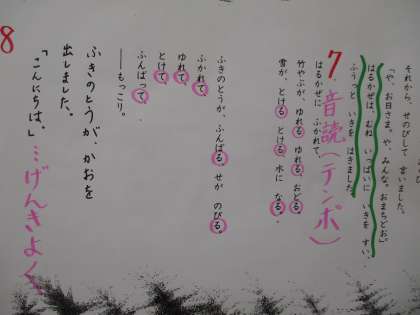 それから、せのびして 言いました。
「や、お日さま。や、みんな。おまちどお。」
はるかぜは、むね いっぱいに いきを すい、
ふうっと いきを はきました。
7 音読(テンポ)
はるかぜに ふかれて、
竹やぶが、ゆれる ゆれる、おどる。
雪が、とける とける、水に なる。
ふきのとうが、ふんばる、せが のびる。
ふかれて、
ゆれて、
とけて、
ふんばって、
――もっこり。
ふきのとうが、かおを
出しました。
「こんにちは。」…げんきよく
8